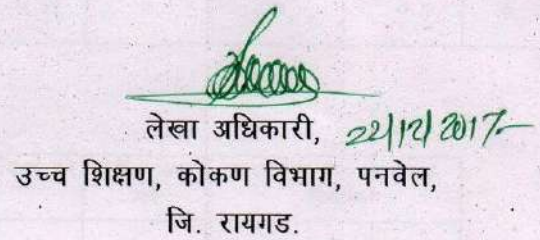 लेखा अधिकारी, 22/12/2017
उच्च शिक्षण, कोकण विभाग, पनवेल,
जि. रायगड.